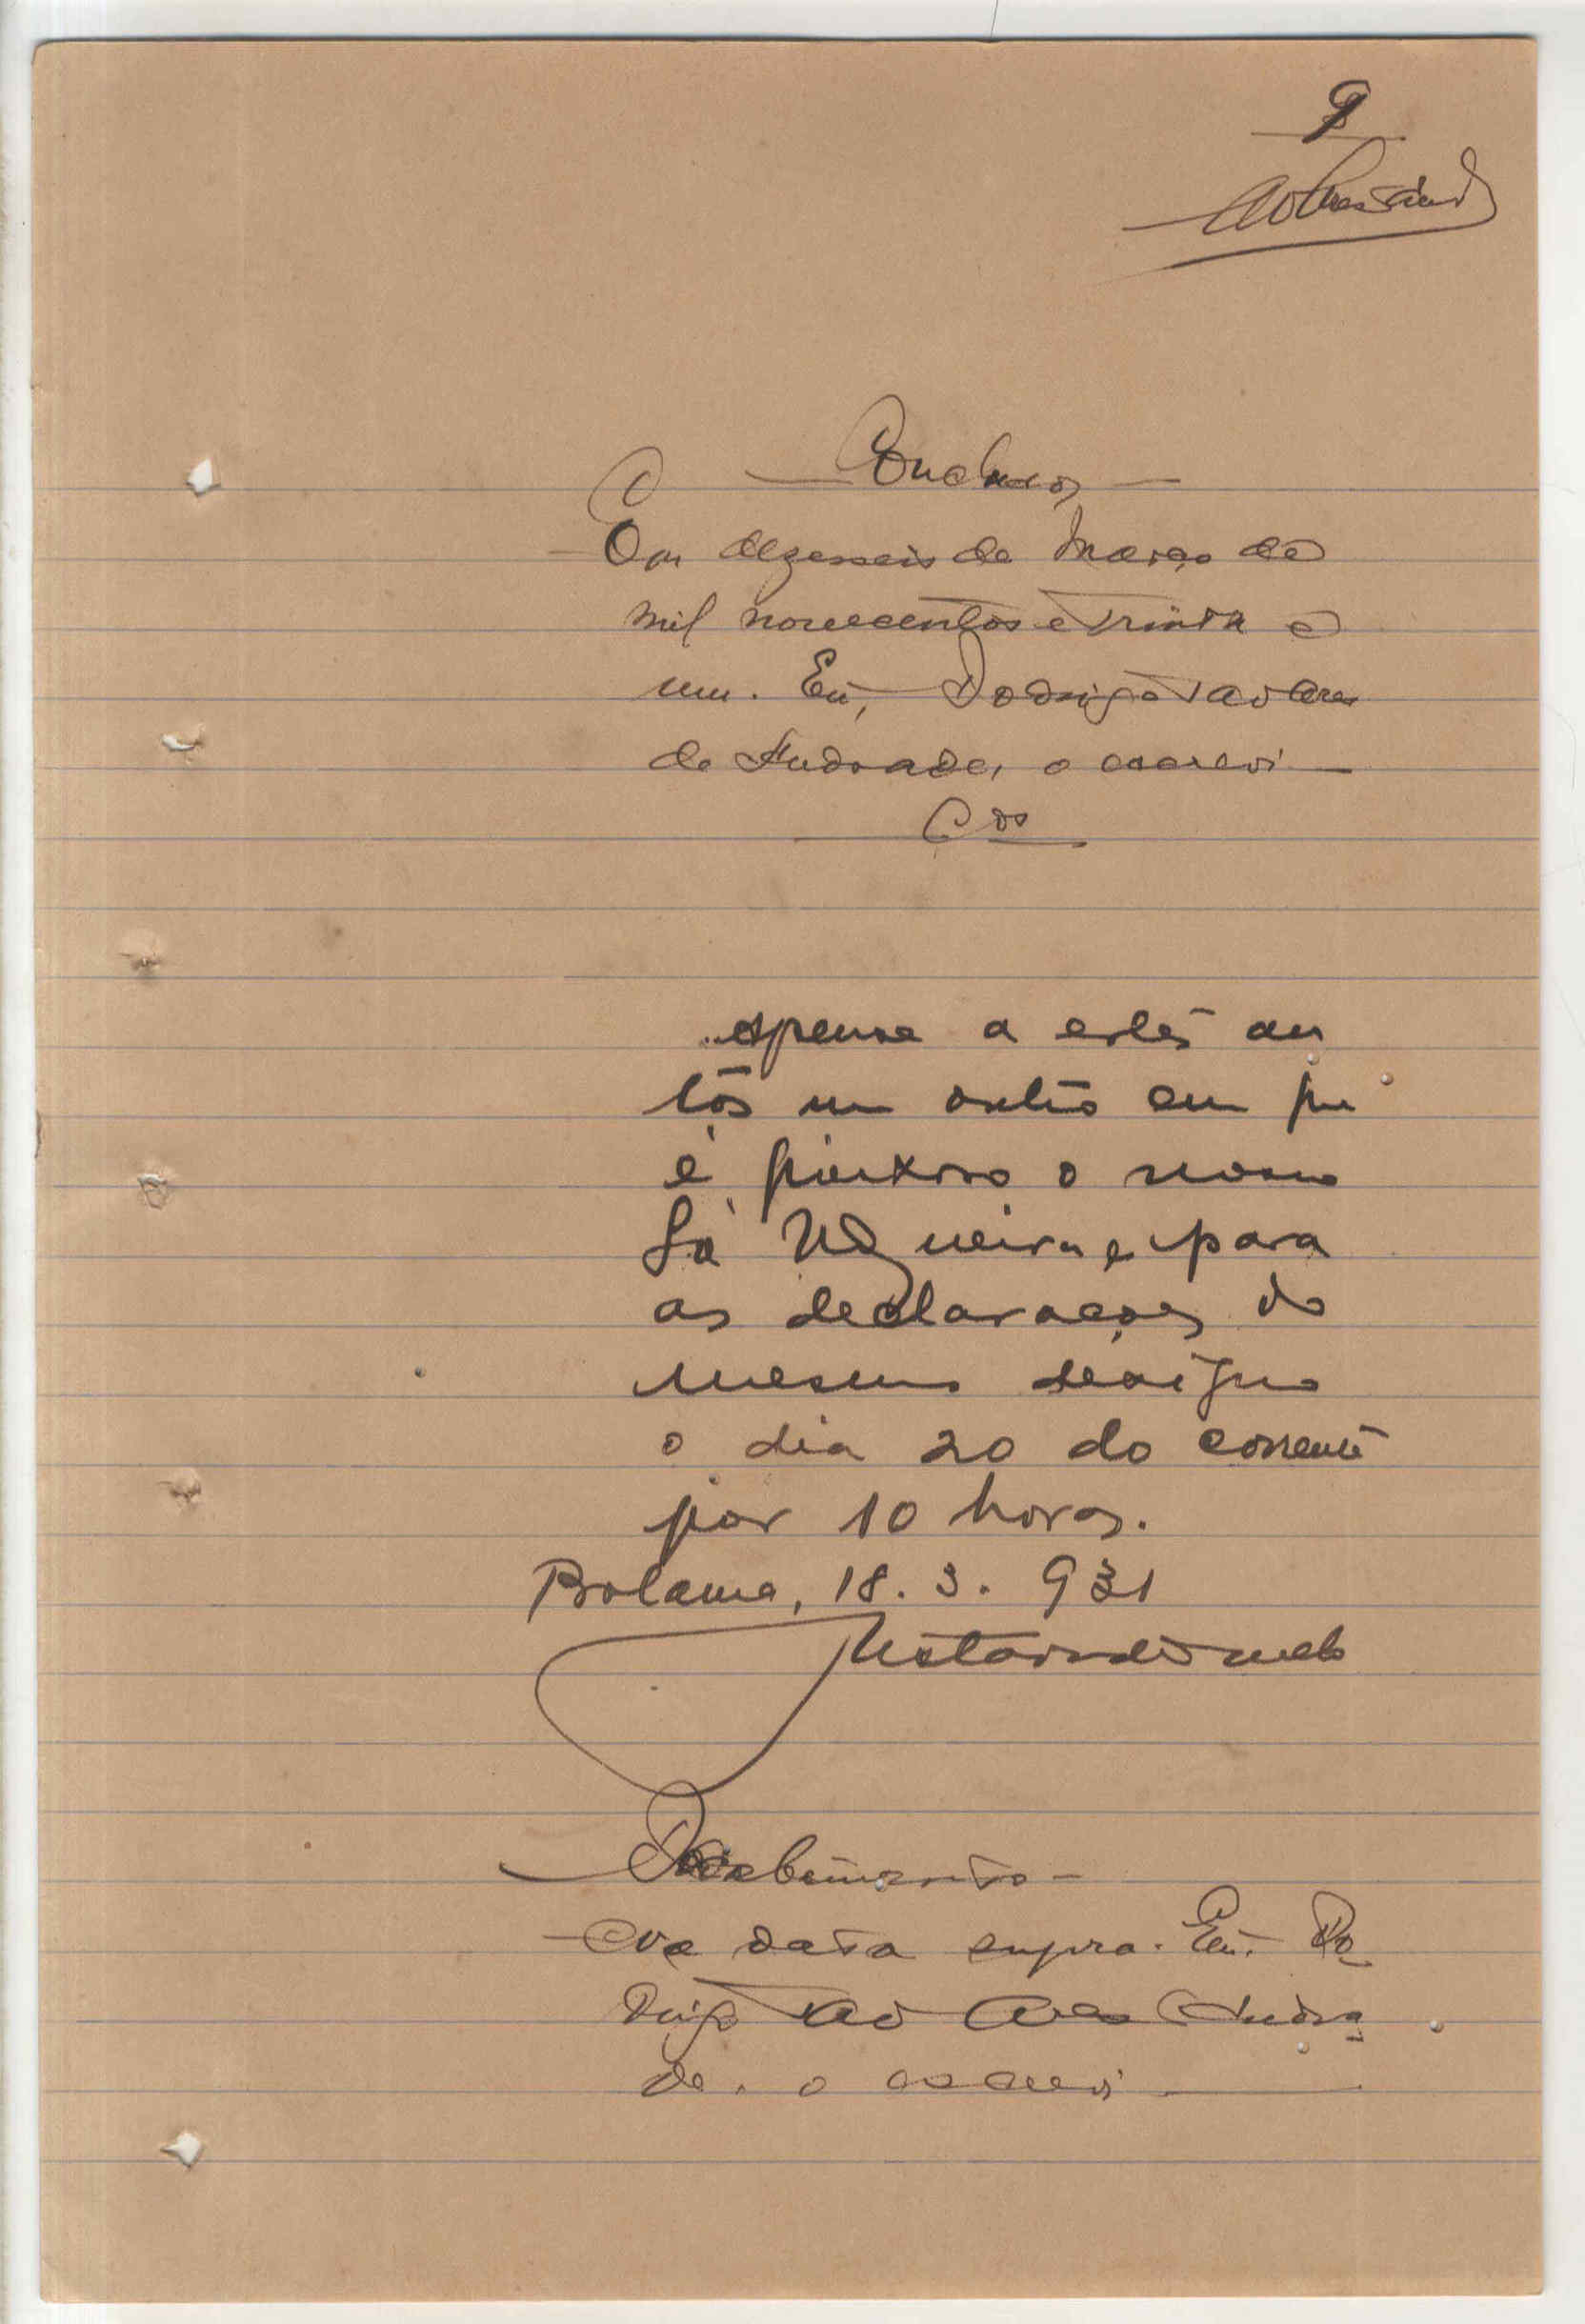 9
Conclusos
Em dezesseis de Março de
mil novecentos e trinta e
um. Eu, Rodrigo Tavares
de Andrade, o escrevi
Cos
apense a estes au
tos um outro em que
é queixoso o mesmo
Sá Nogueira e para
as declarações do
mesmo designo
o dia 20 do corrente
por 10 horas.
Bolama, 18. 3. 931
Recebimento
Na data supra. Eu. Ro
drigo Tavares Andra
de. o escrevi